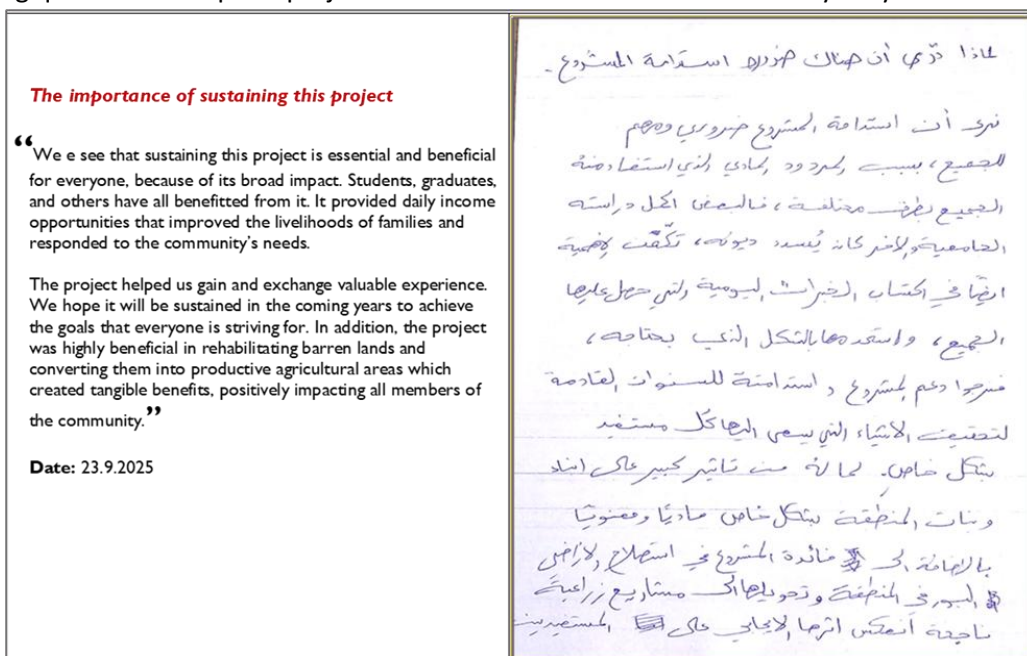 The importance of sustaining this project
“We e see that sustaining this project is essential and beneficial
for everyone, because of its broad impact. Students, graduates,
and others have all benefitted from it. It provided daily income
opportunities that improved the livelihoods of families and
responded to the community’s needs.
The project helped us gain and exchange valuable experience.
We hope it will be sustained in the coming years to achieve
the goals that everyone is striving for. In addition, the project
was highly beneficial in rehabilitating barren lands and
converting them into productive agricultural areas which
created tangible benefits, positively impacting all members of
the community.”
Date: 23.9.2025
لماذا ترى أن هناك ضرورة استدامة المشروع.
نرى أن استدامة المشروع ضروري ومهم
للجميع، بسبب المردود المادي الذي استفاد منه
الجميع بطرق مختلفة، فالبعض اكمل دراسته
الجامعية والاخر كان يُسدد ديونه،
ايضًا في اكتساب الخبرات اليومية والتي حصل عليها
الجميع، بالشكل الذي يحتاجه،
فنرجوا دعم المشروع و استدامتة للسنوات القادمة
لتحقيق الاشياء التي يسعى اليها كل مستفيد
بشكل خاص. لما لة من تاثير كبير على ابناء
وبنات المنطقة بشكل خاص ماديًا ومعنويًا
بالاضافة الى فائدة المشروع في استصلاح الاراضي
البور في المنطقة وتحويلها الى مشاريع زراعية
ناجحة أنعكس اثرها الايجابي على المستفيدين